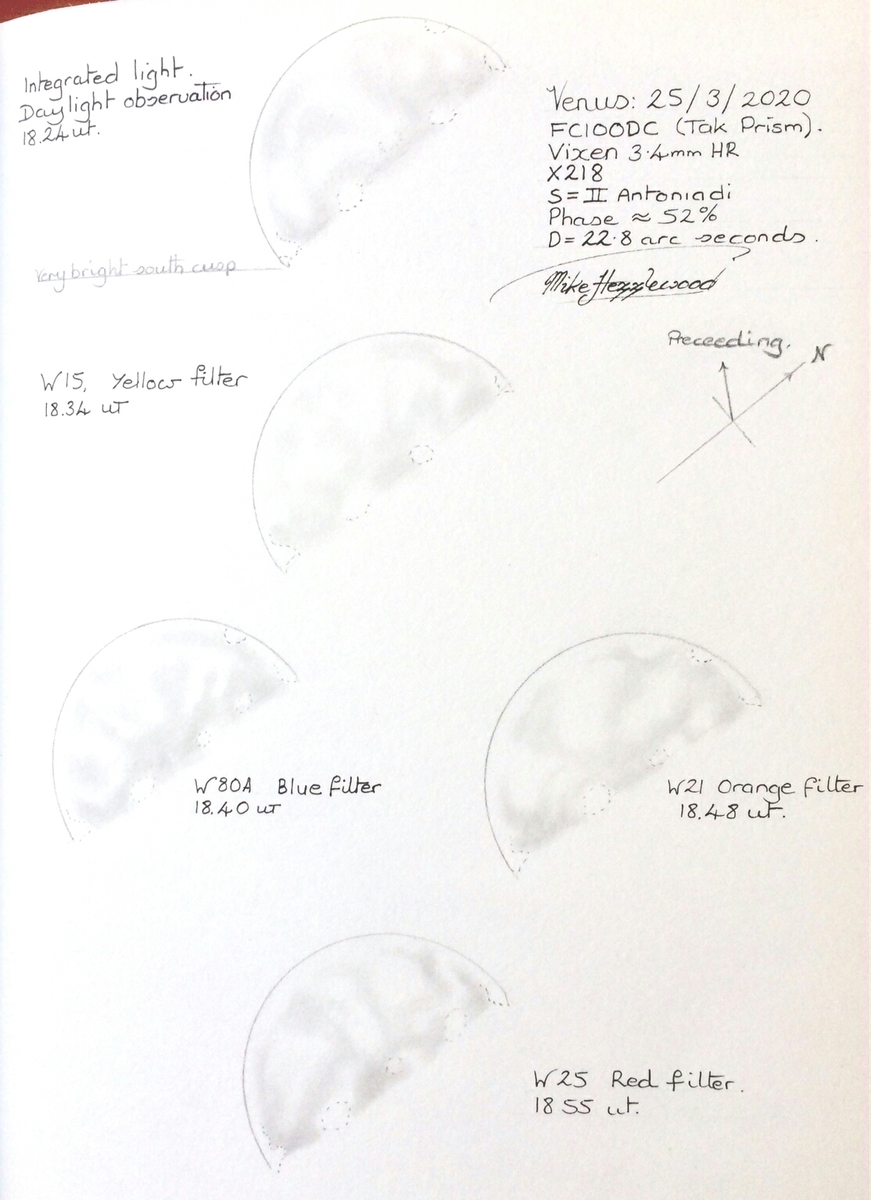 Integrated light.
Daylight observation
18.24 ut.
Venus: 25/3/2020
FC100DC (Tak Prism).
Vixen 3.4mm HR
X218
S=II Antoniadi
Phase ≈ 52%
D=22.8 arc seconds.
Mike Hezzlewood
Very bright south cusp
Preceeding.
N
W15, Yellow filter
18.34 UT
W80A Blue filter
18.40 UT
W21 Orange filter
18.48 ut.
W25 Red filter.
18 55 ut.